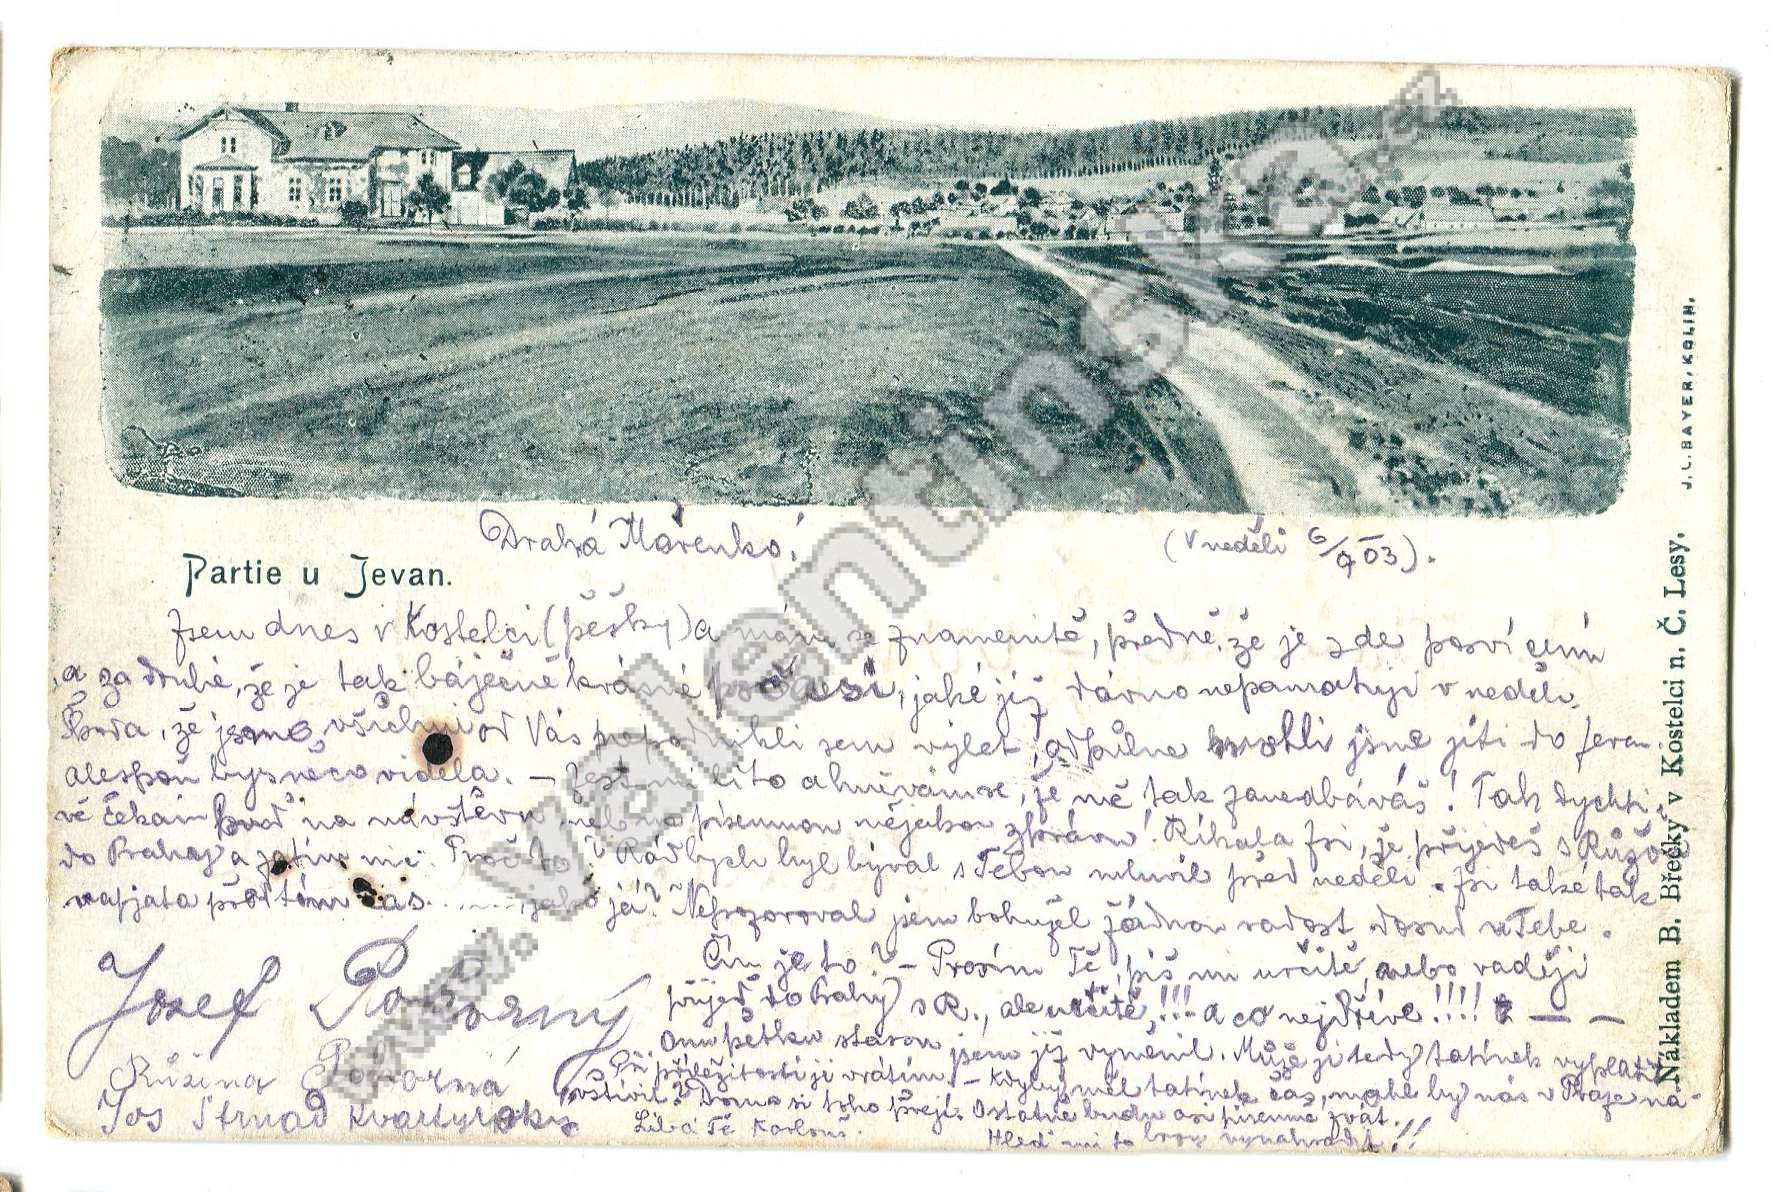 Partie u Jevan.
Drahá Mařenko!
(V neděli 6/9 03).
Jsem dnes v Kostelci (pěšky) a mám se znamenitě, předně, že je zde posvícení
, a za druhé, že je tak báječně krásné počasí, jaké již dávno nepamatuji v neděli.
Škoda, že jsme všichni od Vás nepodnikli sem výlet, odpůldne mohli jsme jíti do Jevan
alespoň bys něco viděla. – Jest mi líto a hněvám se, že mě tak zanedbáváš! Tak dychti-
vě čekám buď na návštěvu nebo na písemnou nějakou zprávu! Říkala jsi, že přijedeš s Růžou
do Prahy a zatím nic. Proč to? Rád bych byl býval s Tebou mluvil před nedělí. Jsi také tak
napjata při tom čas.. jako já? Nepozoroval jsem bohužel žádnou radost dosud u Tebe.
Čím je to? – Prosím Tě, piš mi určitě, nebo raději
přijeď do Prahy s R., ale určitě, !!! a co nejdříve !!!! – –
Onu pětku starou jsem již vyměnil. Může ji tedy tatínek vyplatit
Při příležitosti ji vrátím. – Kdyby měl tatínek čas, mohl by nás v Praze ná-
vštívit? Doma si toho přejí. Ostatně budu asi písemně zvát.
Líbá Tě Karlouš.
Hleď mi to brzy vynahradit!!
Josef Pokorný
Růžena Pokorná
Jos Strnad
Nákladem B. Břečky v Kostelci n. Č. Lesy.
J. L. BAYER, KOLIN.
www.Valentinska.cz